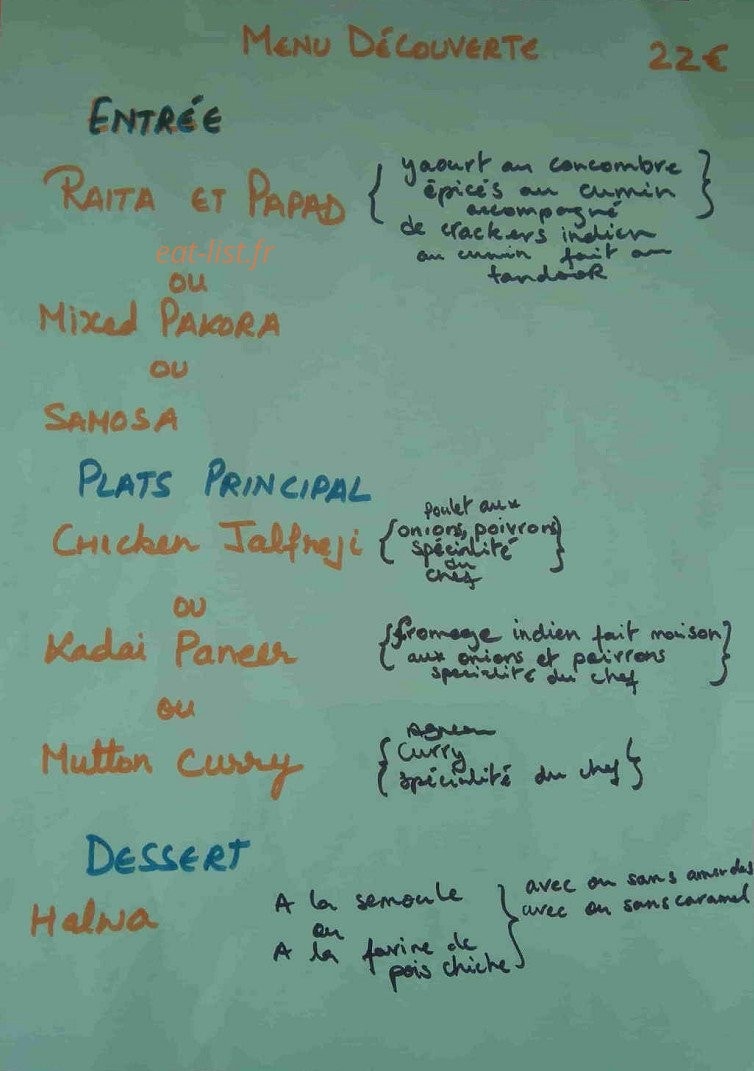 MENU DÉCOUVERTE 22€
ENTRÉE
RAITA ET PAPAD { yaourt au concombre }
épicés au cumin
accompagné
de crackers indien
au cumin fait au
tandooR
eat-list.fr
ou
Mixed PAKORA
ou
SAMOSA
PLATS PRINCIPAL
CHicken Jalfreji { Poulet aux
onions, poivrons }
spécialité
du
chef
ou
Kadai Paneer { fromage indien fait maison }
aux onions et poivrons
specialité du chef
ou
Mutton Curry { Agneau
Curry
spécialité du chef }
DESSERT
Halwa
A la semoule
ou
A la farine de
pois chiche
} avec ou sans amandes
avec ou sans caramel